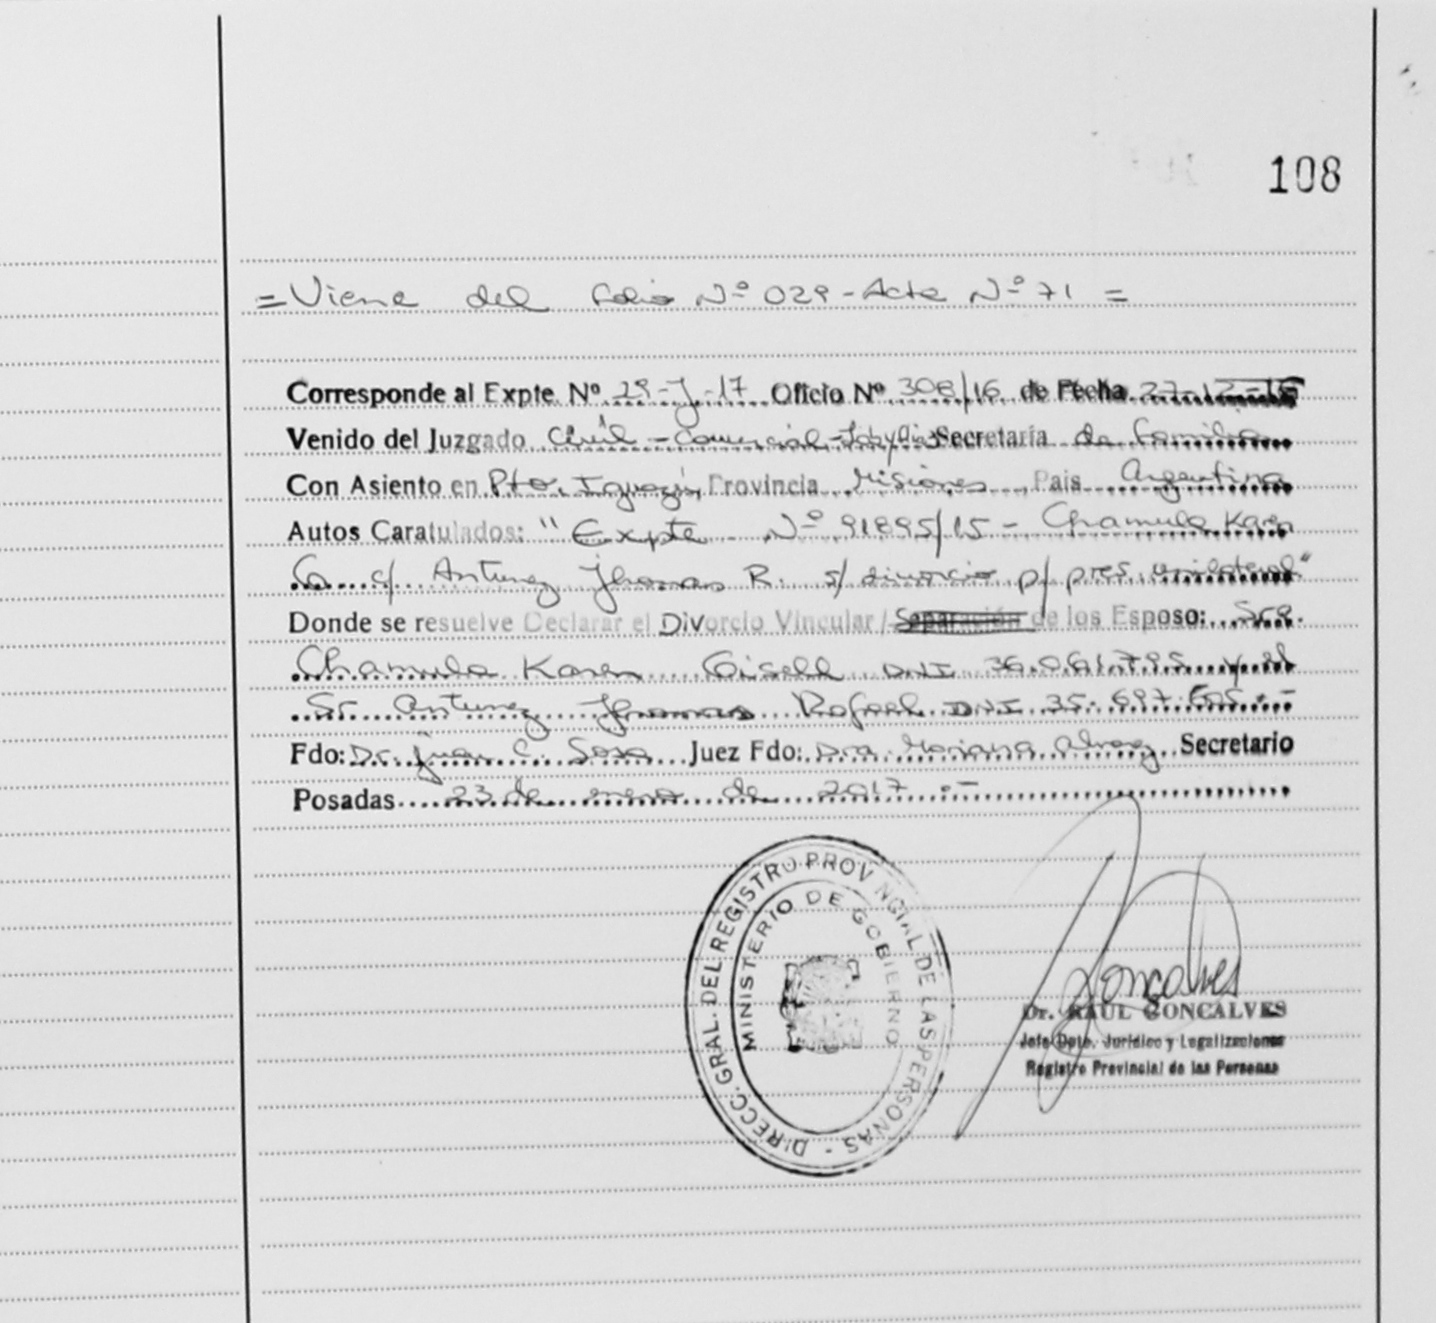 108
= Viene del folio Nº 029 - Acta Nº 71 =
Corresponde al Expte. Nº 29-J-17 Oficio Nº 308/16 de Fecha 27-12-16
Venido del Juzgado Civil - Comercial - Lab y Flia Secretaría de Familia
Con Asiento en Pto. Iguazú, Provincia Misiones, País Argentina
Autos Caratulados: "Expte Nº 91895/15 - Chamula Karen
G. c/ Antunez Jhomas R. s/ divorcio p/ pres. unilateral"
Donde se resuelve Declarar el Divorcio Vincular / Separación de los Esposo: Sra.
Chamula Karen Gisell DNI 36.061.795 y el
Sr. Antunez Jhomas Rafael DNI 35.697.605.-
Fdo: Dr. Juan C. Sosa Juez Fdo: Dra. Mariana Alvez Secretario
Posadas 23 de enero de 2017.-
DIRECC. GRAL. DEL REGISTRO PROVINCIAL DE LAS PERSONAS -
MINISTERIO DE GOBIERNO
Goncalves
Dr. RAUL GONCALVES
Jefe Dpto. Jurídico y Legalizaciones
Registro Provincial de las Personas